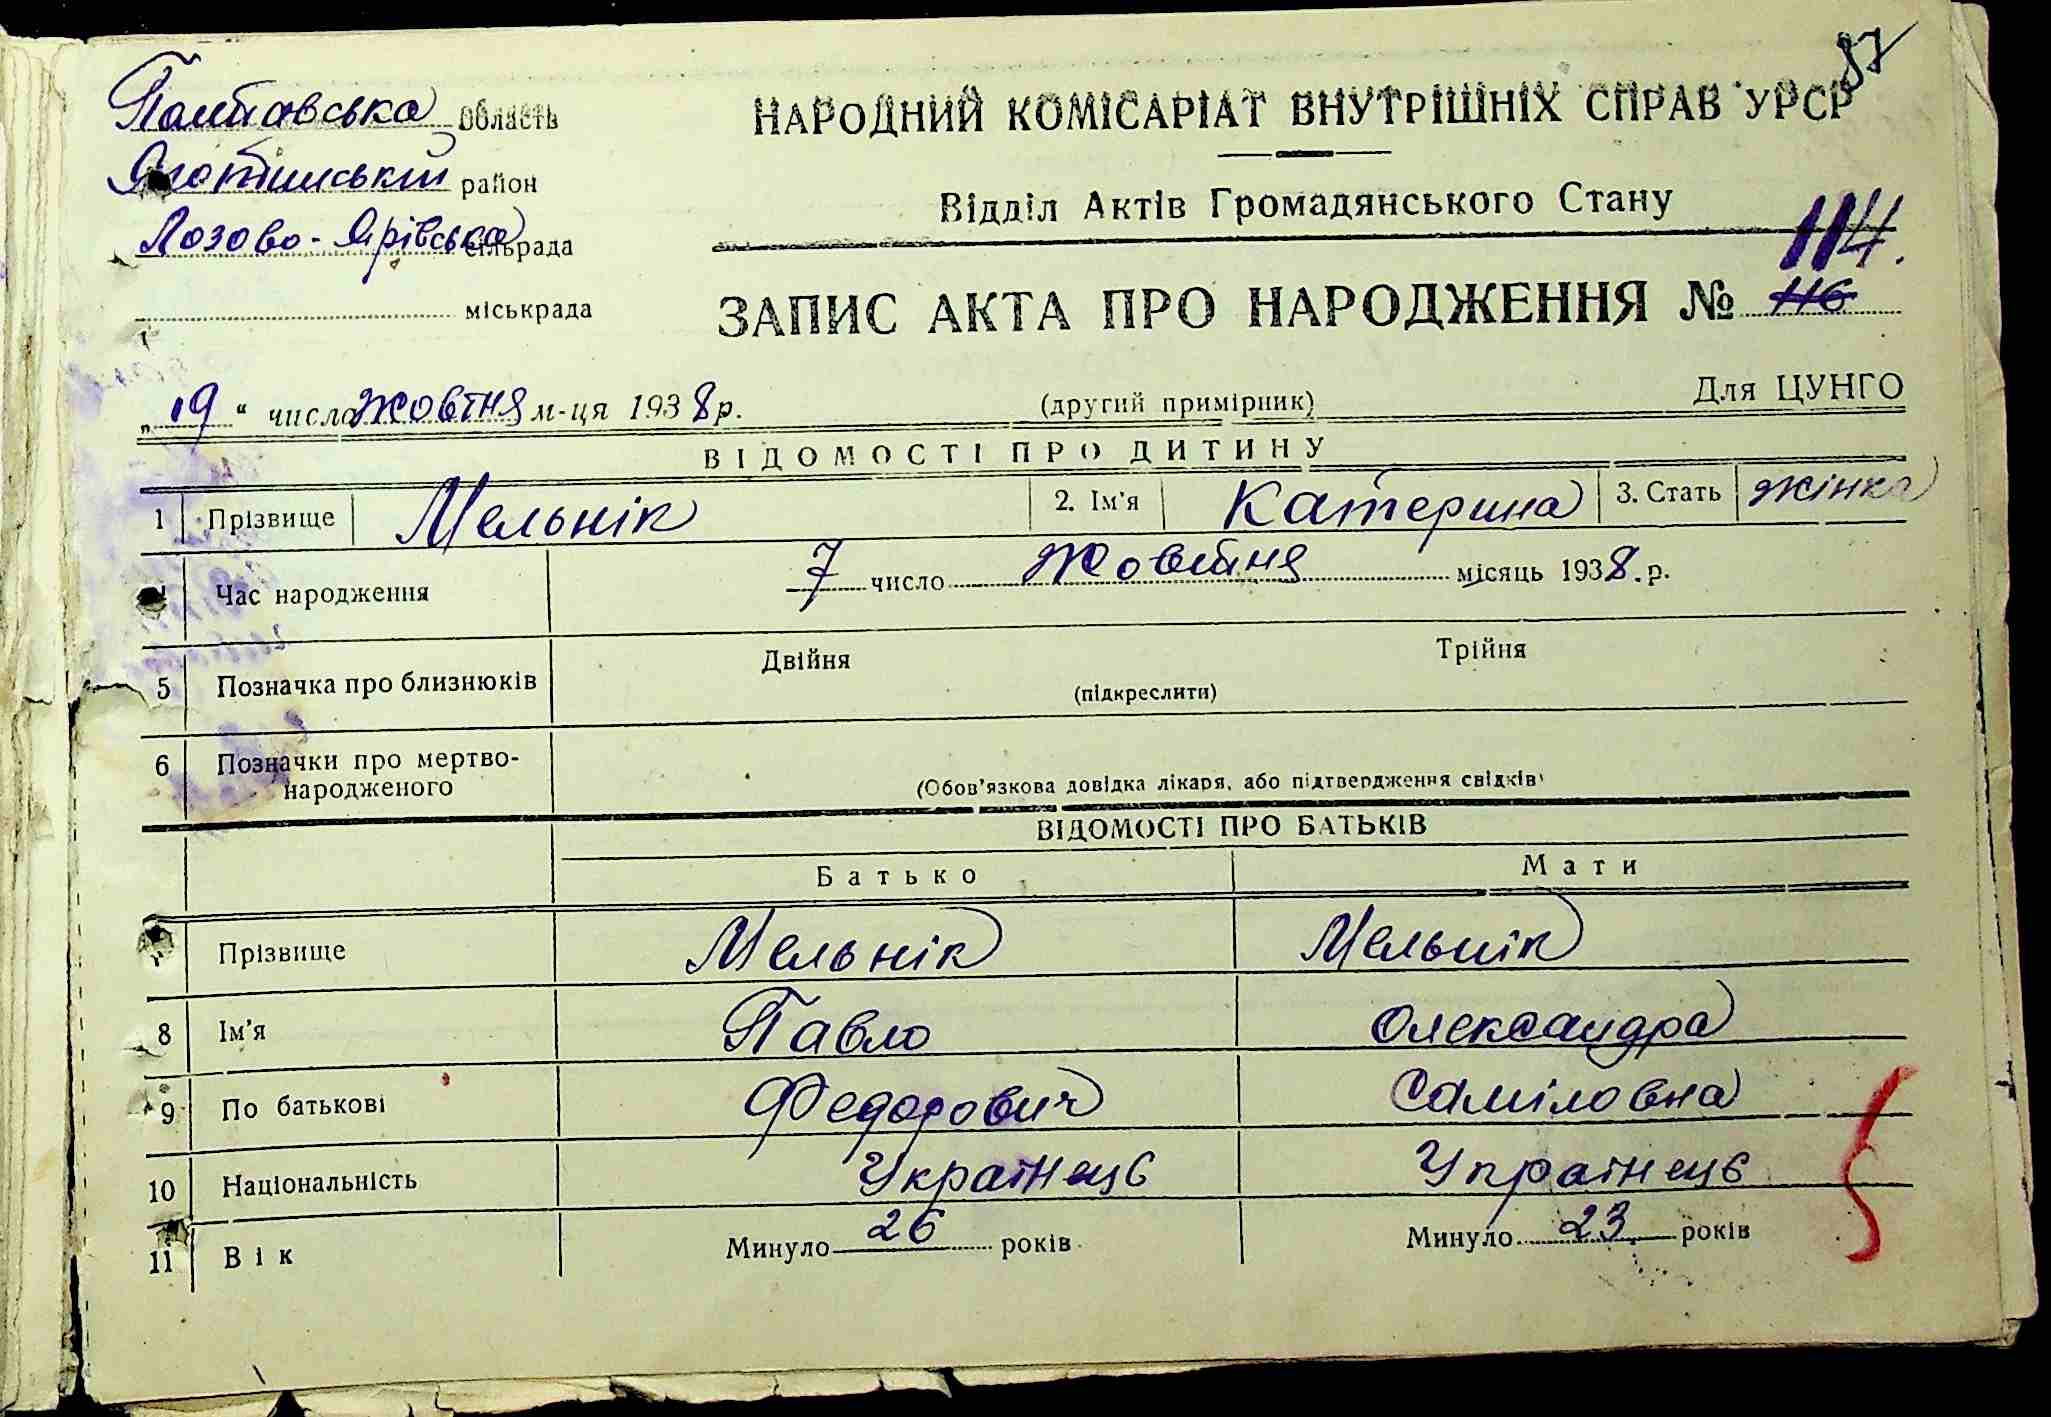 87
Полтавська область
НАРОДНИЙ КОМІСАРІАТ ВНУТРІШНІХ СПРАВ УРСР
Яготинський район
Відділ Актів Громадянського Стану
Лозово-Ярівська сільрада
114.
міськрада
ЗАПИС АКТА ПРО НАРОДЖЕННЯ № 116
„19“ число жовтня м-ця 1938 р.
(другий примірник)
Для ЦУНГО
ВІДОМОСТІ ПРО ДИТИНУ
1 Прізвище Мельнік 2. Ім'я Катерина 3. Стать жінка
Час народження 7 число жовтня місяць 1938. р.
5 Позначка про близнюків Двійня Трійня
(підкреслити)
6 Позначки про мертво-
народженого
(Обов'язкова довідка лікаря, або підтвердження свідків)
ВІДОМОСТІ ПРО БАТЬКІВ
Батько Мати
Прізвище Мельнік Мельнік
8 Ім'я Павло Олександра
9 По батькові Федорович Саміловна
10 Національність Українець Українець
11 Вік Минуло 26 років Минуло 23 років